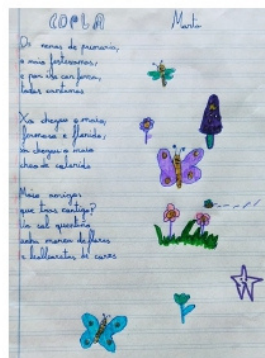 COPLA Marta
Os nenos de primaria,
o maio festexamos,
e por iso con forza,
todos cantamos
Xa chegou o maio,
fermoso e florido,
xa chegou o maio
cheo de colorido
Maio amigo
que tras contigo?
Un sol quentiño
unha manca de flores
e bolboretas de cores